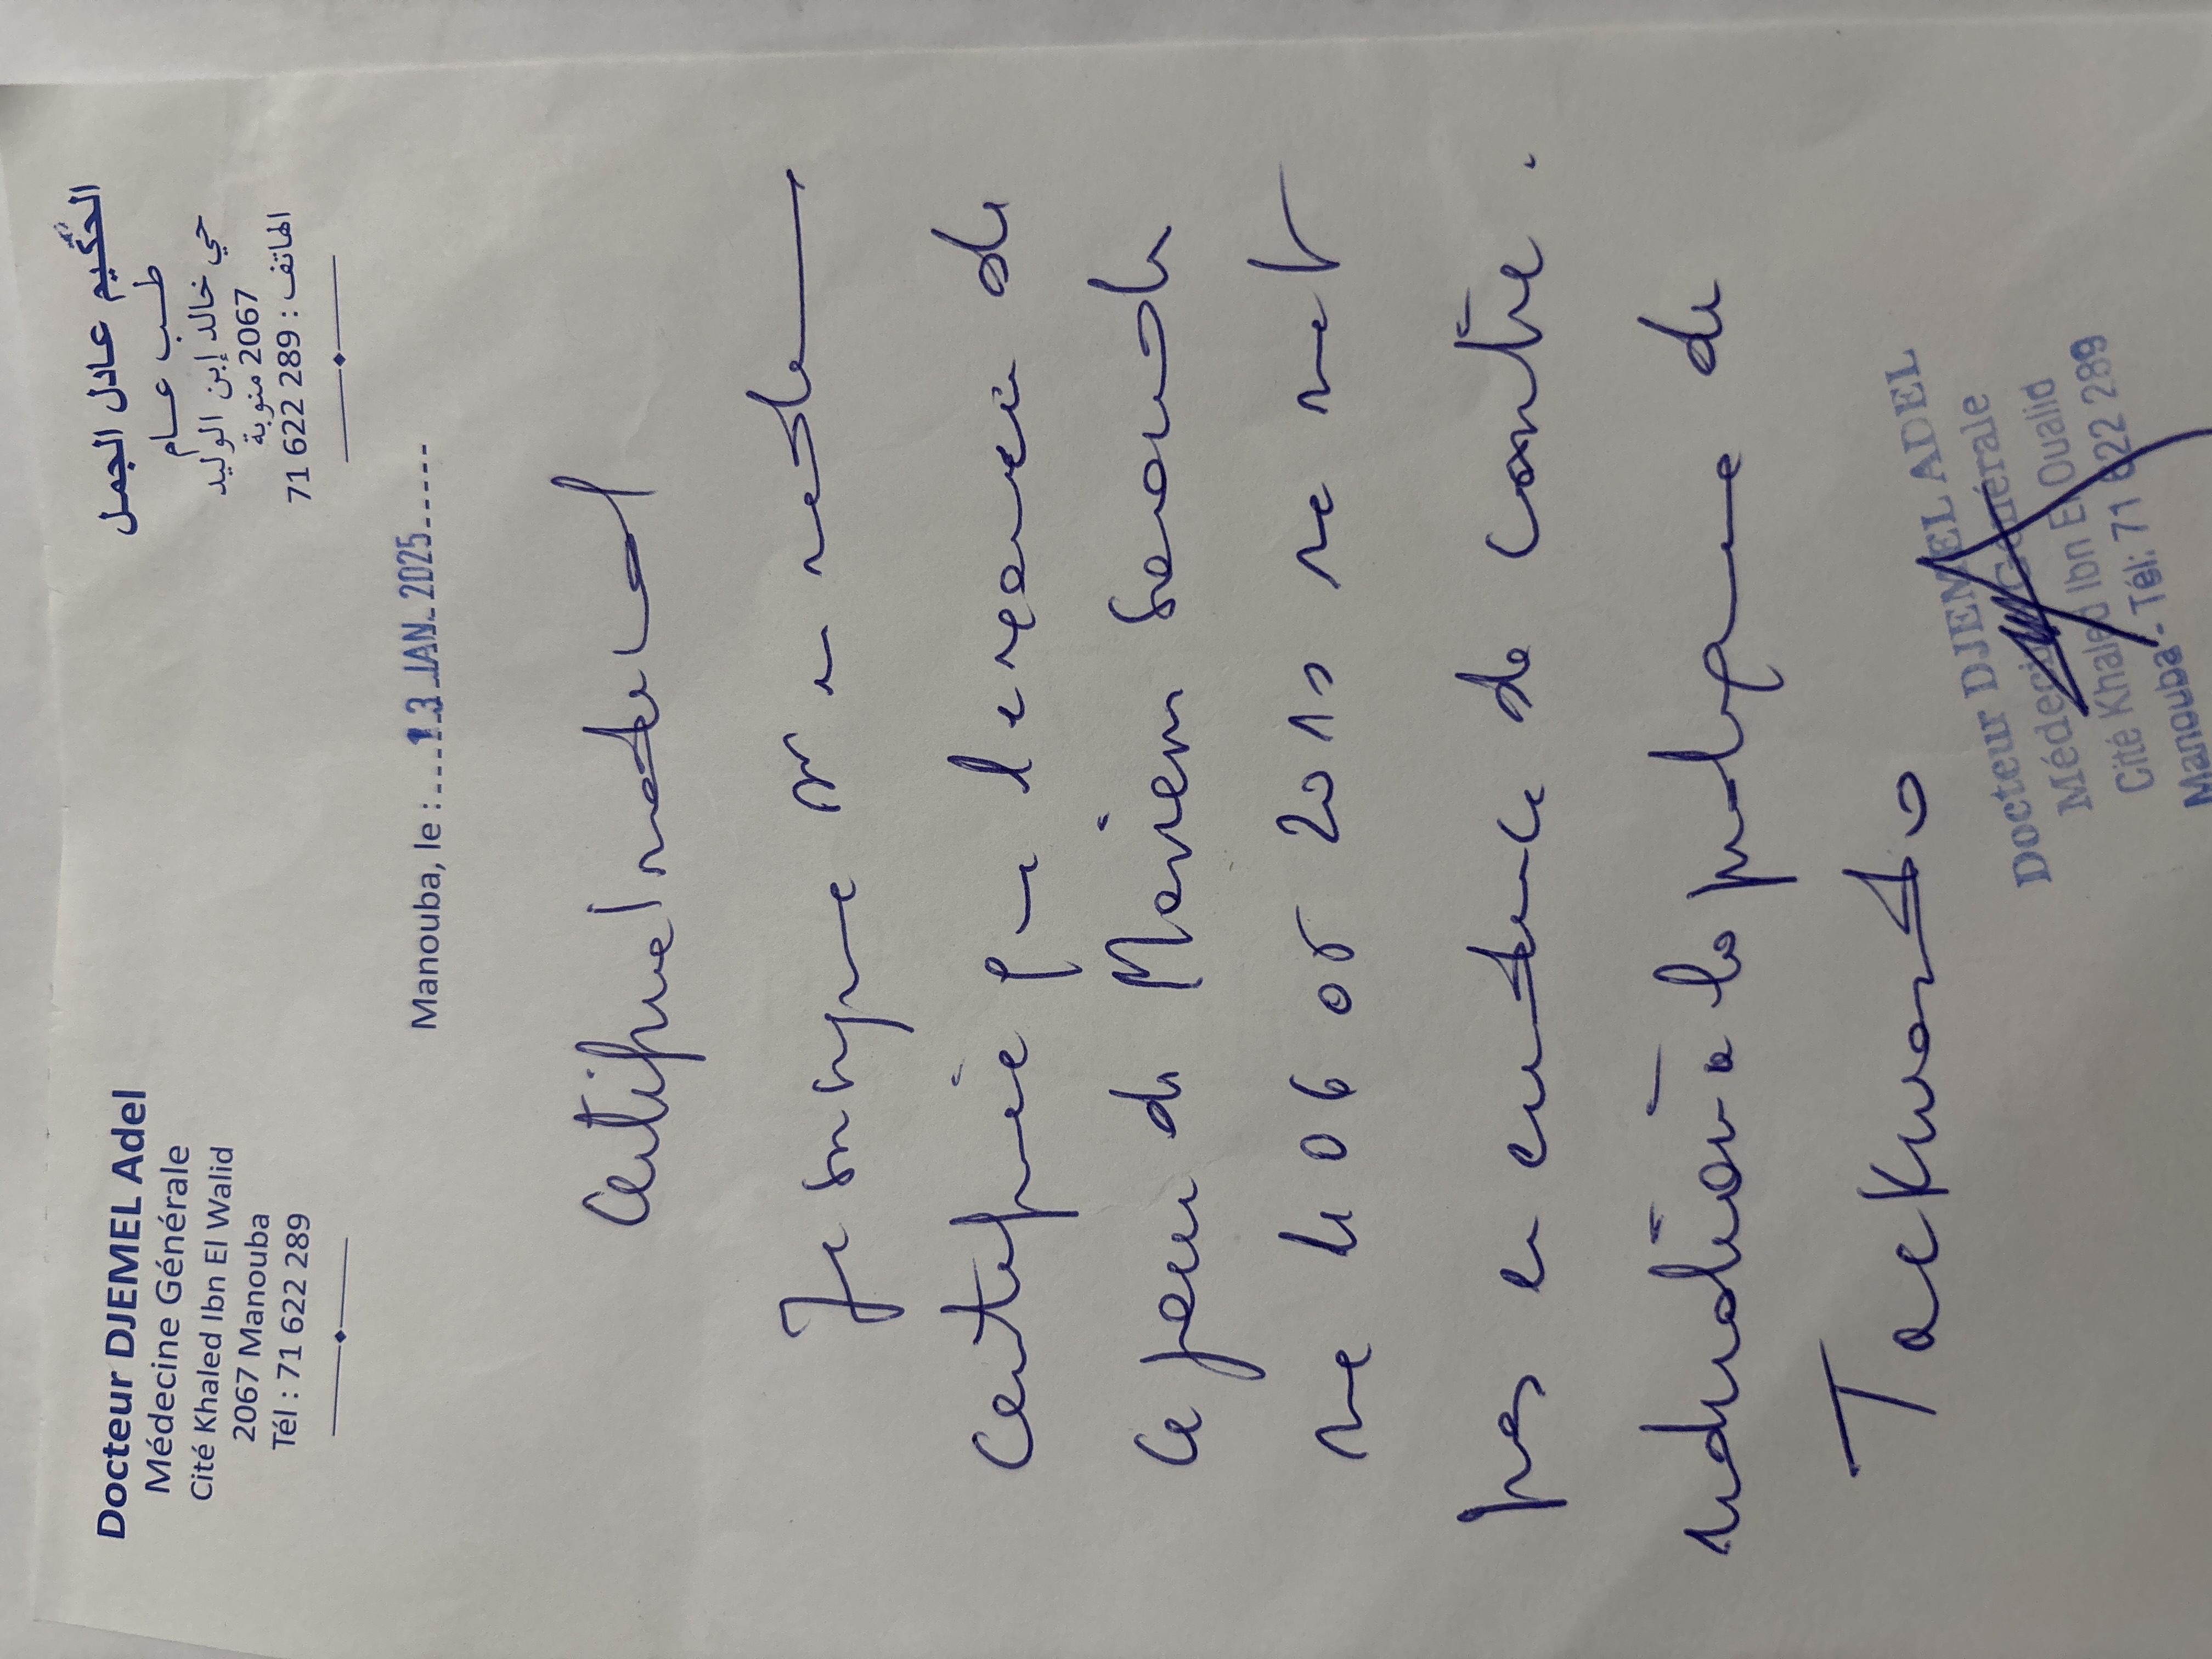 Docteur DJEMEL Adel
Médecine Générale
Cité Khaled Ibn El Walid
2067 Manouba
Tél : 71 622 289
الحكيم عادل الجمل
طب عام
حي خالد إبن الوليد
2067 منوبة
الهاتف : 71 622 289
Manouba, le : 13 JAN. 2025
Certificat médical
Je soussigné
Certifie l'examen de
ce jour de Mariem
née le 06 08 2013 ne met
pas en évidence de contre
indication à la pratique du
Taekwondo
Docteur DJEMEL ADEL
Médecine Générale
Cité Khaled Ibn El Oualid
Manouba - Tél: 71 622 289